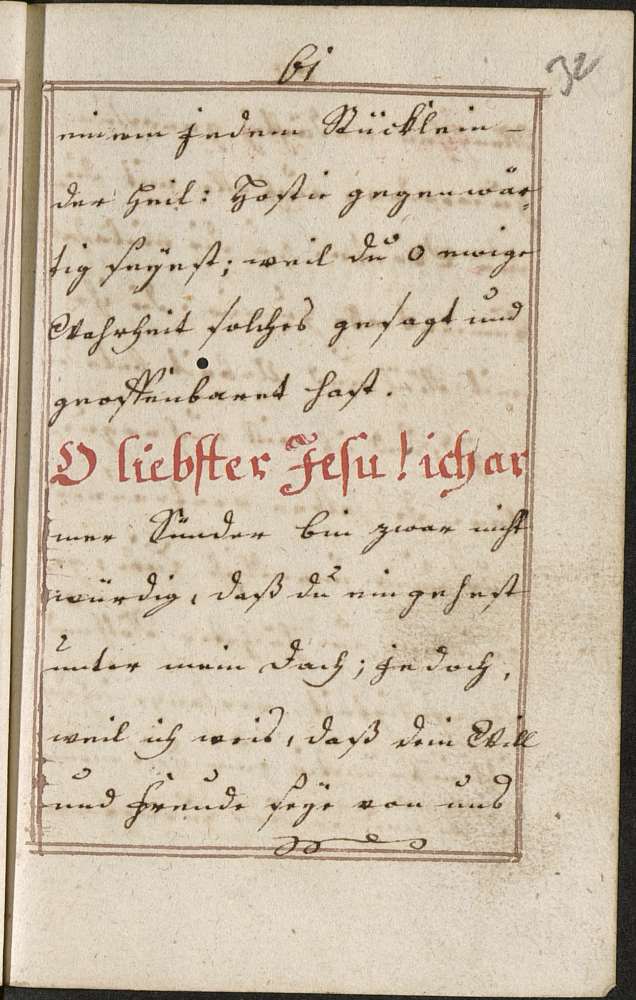 61
32
einem jedem Stücklein
der Heil: Hostie gegenwär,
tig seyest; weil du O ewige
Wahrheit solches gesagt und
geoffenbaret hast.
O liebster Jesu! ich ar
mer Sünder bin zwar nicht
würdig, daß du eingehest
unter mein Dach; jedoch,
weil ich weis, daß dein Will
und Freude seye von uns